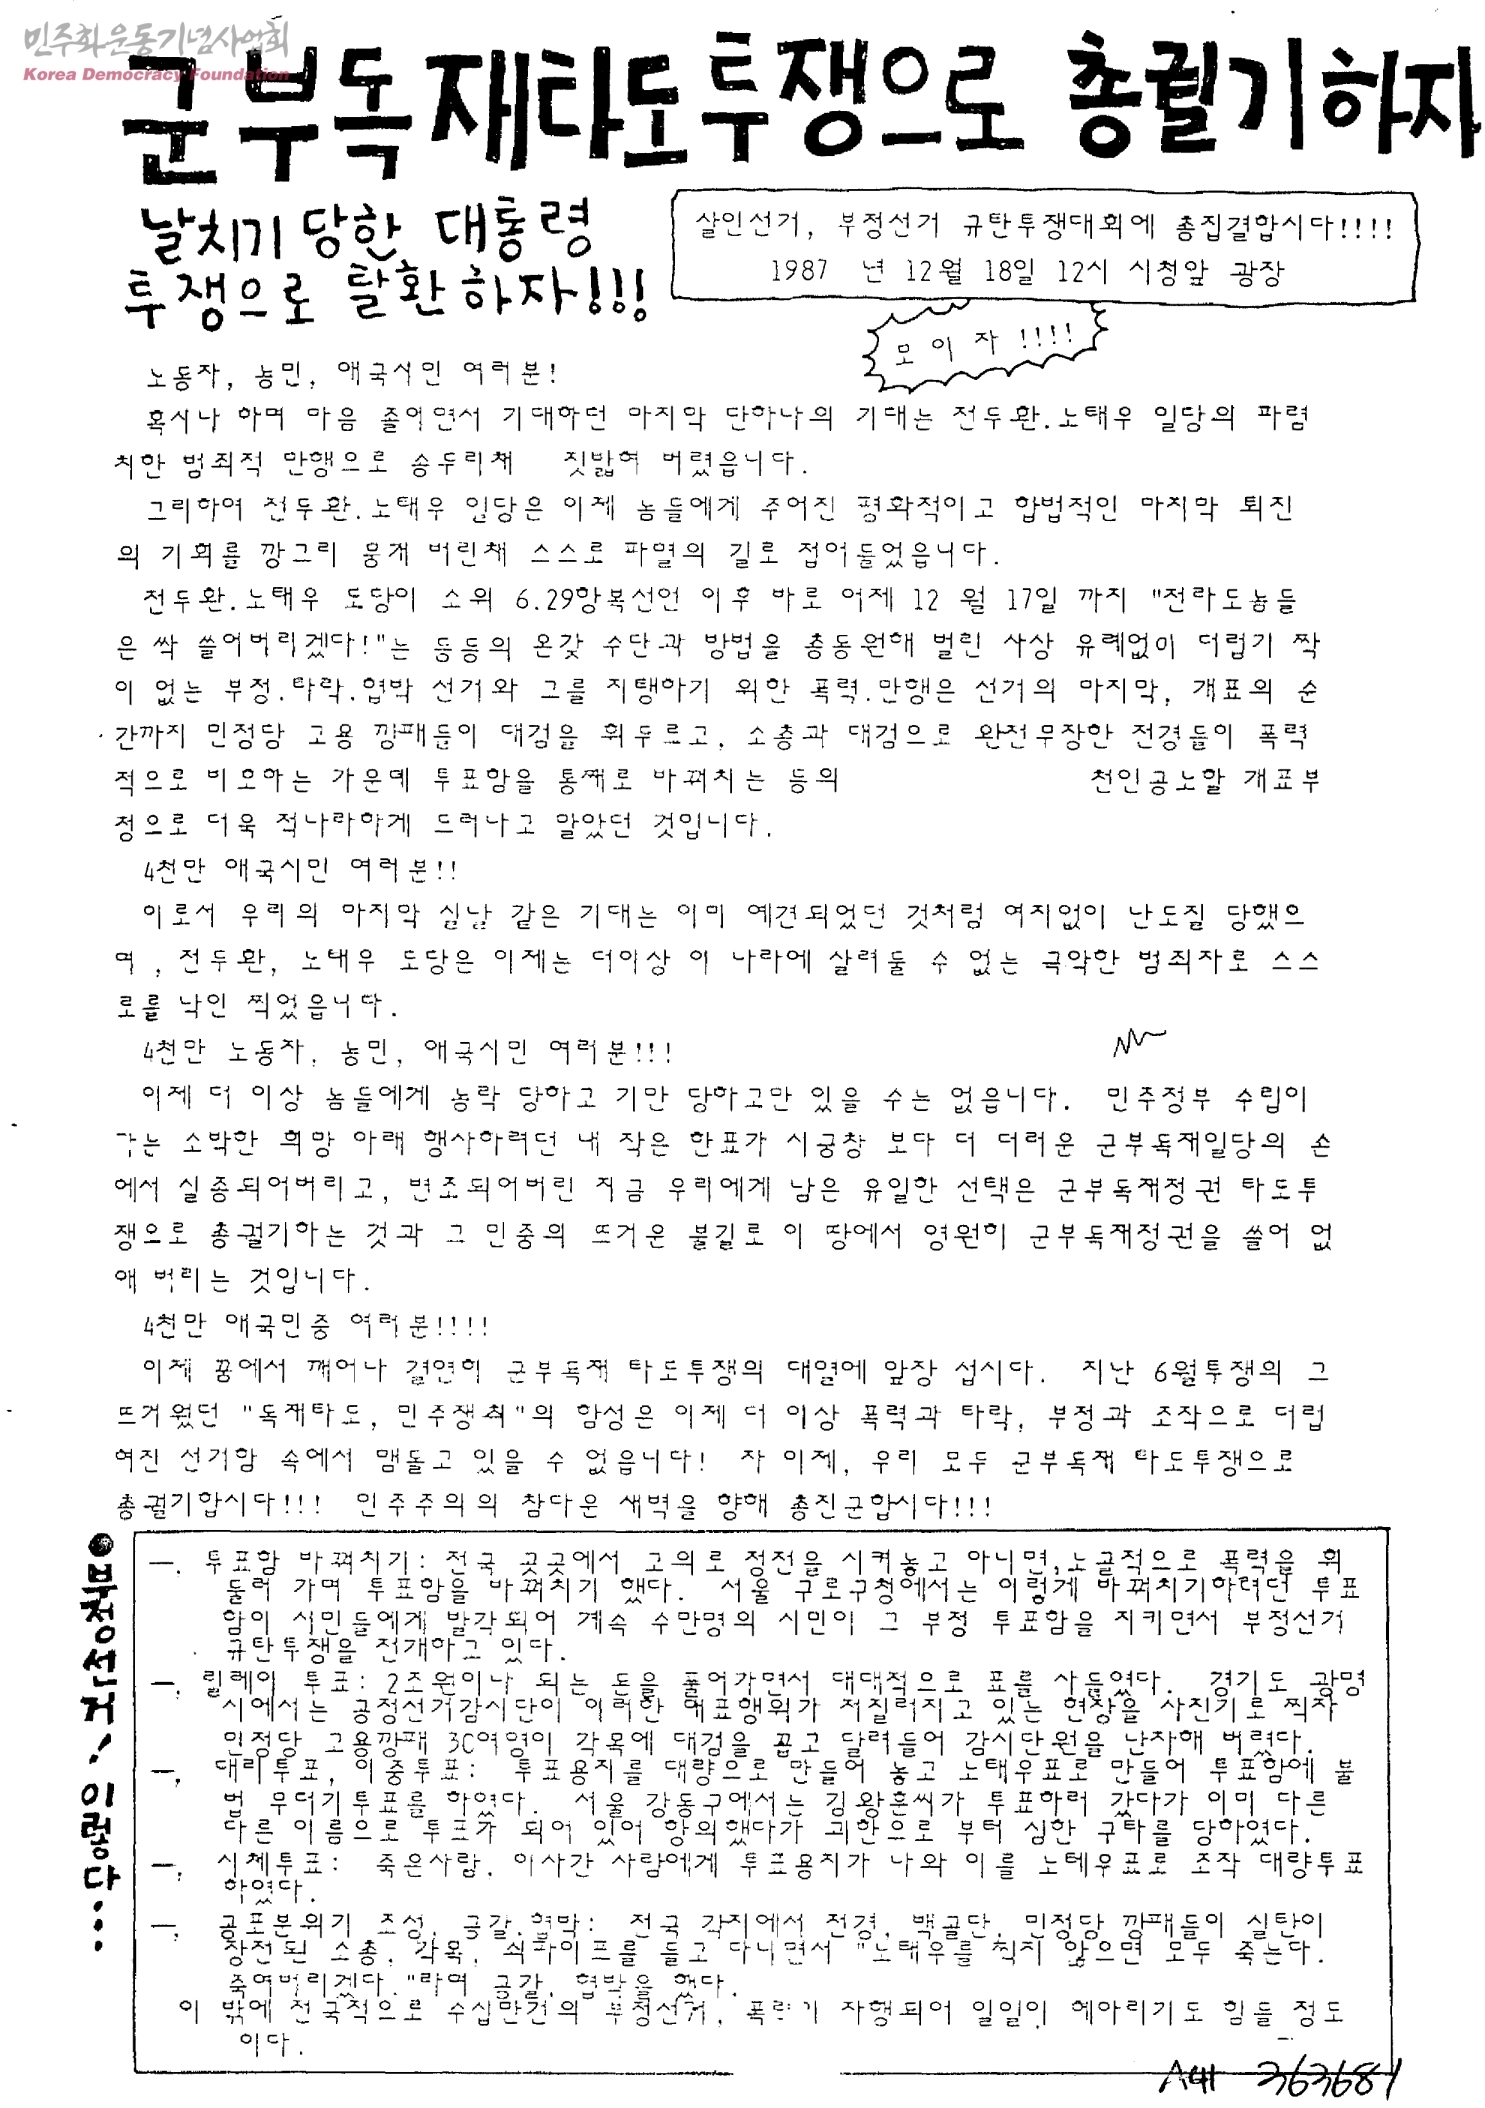 민주화운동기념사업회
Korea Democracy Foundation
군부독재타도투쟁으로 총궐기하자
날치기 당한 대통령
투쟁으로 탈환하자!!!
살인선거, 부정선거 규탄투쟁대회에 총집결합시다!!!!
1987 년 12월 18일 12시 시청앞 광장
모이자!!!!
노동자, 농민, 애국시민 여러분!
혹시나 하며 마음 졸이면서 기대하던 마지막 단하나의 기대는 전두환.노태우 일당의 파렴
치한 범죄적 만행으로 송두리채 짓밟혀 버렸읍니다.
그리하여 전두환.노태우 일당은 이제 놈들에게 주어진 평화적이고 합법적인 마지막 퇴진
의 기회를 깡그리 뭉개 버린채 스스로 파멸의 길로 접어들었읍니다.
전두환.노태우 도당이 소위 6.29항복선언 이후 바로 어제 12 월 17일 까지 "전라도놈들
은 싹 쓸어버리겠다!"는 등등의 온갖 수단과 방법을 총동원해 벌린 사상 유례없이 더럽기 짝
이 없는 부정.타락.협박 선거와 그를 지탱하기 위한 폭력.만행은 선거의 마지막, 개표의 순
간까지 민정당 고용 깡패들이 대검을 휘두르고, 소총과 대검으로 완전무장한 전경들이 폭력
적으로 비호하는 가운데 투표함을 통째로 바꿔치는 등의 천인공노할 개표부
정으로 더욱 적나라하게 드러나고 말았던 것입니다.
4천만 애국시민 여러분!!
이로서 우리의 마지막 실날 같은 기대는 이미 예견되었던 것처럼 여지없이 난도질 당했으
며 , 전두환, 노태우 도당은 이제는 더이상 이 나라에 살려둘 수 없는 극악한 범죄자로 스스
로를 낙인 찍었읍니다.
4천만 노동자, 농민, 애국시민 여러분!!!
이제 더 이상 놈들에게 농락 당하고 기만 당하고만 있을 수는 없읍니다. 민주정부 수립이
라는 소박한 희망 아래 행사하려던 내 작은 한표가 시궁창 보다 더 더러운 군부독재일당의 손
에서 실종되어버리고, 변조되어버린 지금 우리에게 남은 유일한 선택은 군부독재정권 타도투
쟁으로 총궐기하는 것과 그 민중의 뜨거운 불길로 이 땅에서 영원히 군부독재정권을 쓸어 없
애 버리는 것입니다.
4천만 애국민중 여러분!!!!
이제 꿈에서 깨어나 결연히 군부독재 타도투쟁의 대열에 앞장 섭시다. 지난 6월투쟁의 그
뜨거웠던 "독재타도, 민주쟁취"의 함성은 이제 더 이상 폭력과 타락, 부정과 조작으로 더럽
여진 선거함 속에서 맴돌고 있을 수 없읍니다! 자 이제, 우리 모두 군부독재 타도투쟁으로
총궐기합시다!!! 민주주의의 참다운 새벽을 향해 총진군합시다!!!
●부정선거! 이렇다...
一. 투표함 바꿔치기: 전국 곳곳에서 고의로 정전을 시켜놓고 아니면,노골적으로 폭력을 휘
둘러 가며 투표함을 바꿔치기 했다. 서울 구로구청에서는 이렇게 바꿔치기하려던 투표
함이 시민들에게 발각되어 계속 수만명의 시민이 그 부정 투표함을 지키면서 부정선거
규탄투쟁을 전개하고 있다.
一. 릴레이 투표: 2조원이나 되는 돈을 풀어가면서 대대적으로 표를 사들였다. 경기도 광명
시에서는 공정선거감시단이 이러한 매표행위가 저질러지고 있는 현장을 사진기로 찍자
민정당 고용깡패 30여명이 각목에 대검을 꼽고 달려들어 감시단원을 난자해 버렸다.
一. 대리투표, 이중투표: 투표용지를 대량으로 만들어 놓고 노태우표로 만들어 투표함에 불
법 무더기투표를 하였다. 서울 강동구에서는 김왕훈씨가 투표하러 갔다가 이미 다른
다른 이름으로 투표가 되어 있어 항의했다가 괴한으로 부터 심한 구타를 당하였다.
一. 시체투표: 죽은사람, 이사간 사람에게 투표용지가 나와 이를 노테우표로 조작 대량투표
하였다.
一. 공포분위기 조성, 공갈.협박: 전국 각지에서 전경, 백골단, 민정당 깡패들이 실탄이
장전된 소총, 각목, 쇠파이프를 들고 다니면서 "노태우를 찍지 않으면 모두 죽는다.
죽여버리겠다."라며 공갈, 협박을 했다.
이 밖에 전국적으로 수십만건의 부정선거, 폭력이 자행되어 일일이 헤아리기도 힘들 정도
이다.
363681